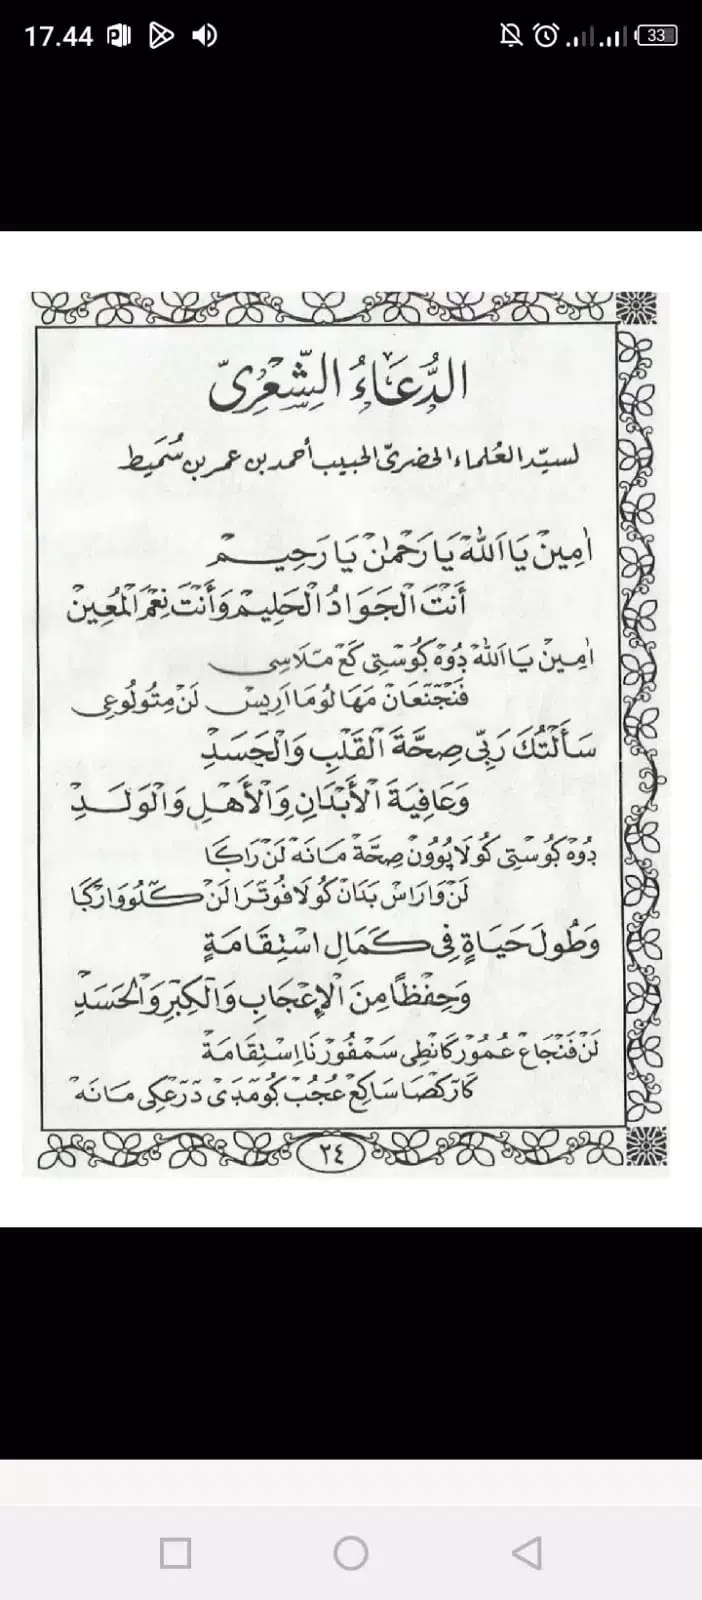 17.44
33
الدُّعَاءُ الشِّعْرِىّ
لسيّد العُلماء الحضرىّ الحبيب أحمد بن عمر بن سُمَيط
اٰمِينْ يَا اَللهْ يَا رَحْمٰنْ يَا رَحِيمْ
أَنْتَ الْجَوَادُ الْحَلِيمْ وَأَنْتَ نِعْمَ الْمُعِينْ
اٰمِينْ يَا اَللهْ دُوْهْ ڮُوسْتِى كَڠْ مَلَاسِى
فَنْجَنَڠَانْ مَهَا لُومَا اَرِيسْ لَنْ مِتُولُوڠِى
سَأَلْتُكَ رَبِّى صِحَّةَ الْقَلْبِ وَالْجَسَدِ
وَعَافِيَةَ الْأَبْدَانِ وَالْأَهْلِ وَالْوَلَدِ
دُوْهْ ڮُوسْتِى كُولَا پُوْوُنْ صِحَّةْ مَانَهْ لَنْ رَاڮَا
لَنْ وَارَاسْ بَدَانْ كُولَا فُوتْرَا لَنْ كَلُوْوَارْڮَا
وَطُولَ حَيَاةٍ فِى كَمَالِ اسْتِقَامَةٍ
وَحِفْظًا مِنَ الْإِعْجَابِ وَالْكِبْرِ وَالْحَسَدِ
لَنْ فَنْجَاڠْ عُمُورْ كَانْطِى سَمْفُورْنَا اِسْتِقَامَةْ
عُجُبْ مَانَهْ
٢٤